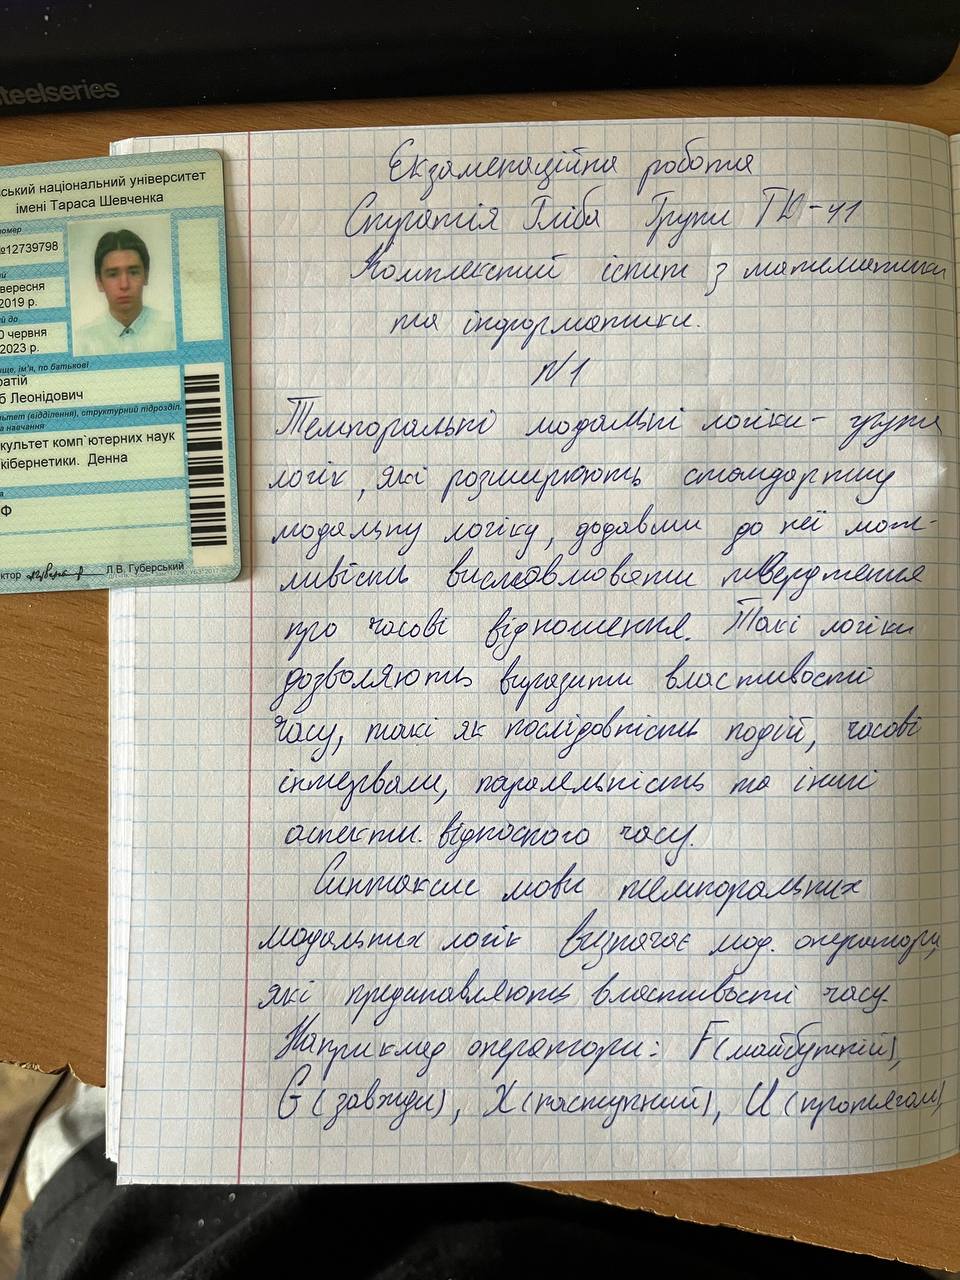 steelseries
ський національний університет
імені Тараса Шевченка
омер
№12739798
ий
вересня
2019 р.
ий до
0 червня
2023 р.
ище, ім'я, по батькові
ратій
б Леонідович
ьтет (відділення), структурний підрозділ.
а навчання
культет комп`ютерних наук
кібернетики. Денна
Ф
ктор
Л.В. Губерський
Екзаменаційна робота
Спуратія Гліба Групи ТК-41
Комплексний іспит з математики
та інформатики.
№1
Темпоральні модальні логіки - група
логік, які розширюють стандартну
модальну логіку, додавши до неї мож-
ливість висловлювати твердження
про часові відношення. Такі логіки
дозволяють виразити властивості
часу, такі як послідовність подій, часові
інтервали, паралельність та інші
аспекти відносного часу.
Синтаксис мови темпоральних
модальних логік визначає мод. оператори,
які представляють властивості часу.
Наприклад оператори: F(майбутній),
G(завжди), X(наступний), U(протягом),